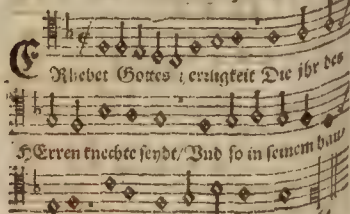 ERhebet Gottes heiligkeit Die jhr des
HErren knechte seydt/ Vnd so in seinem hau/